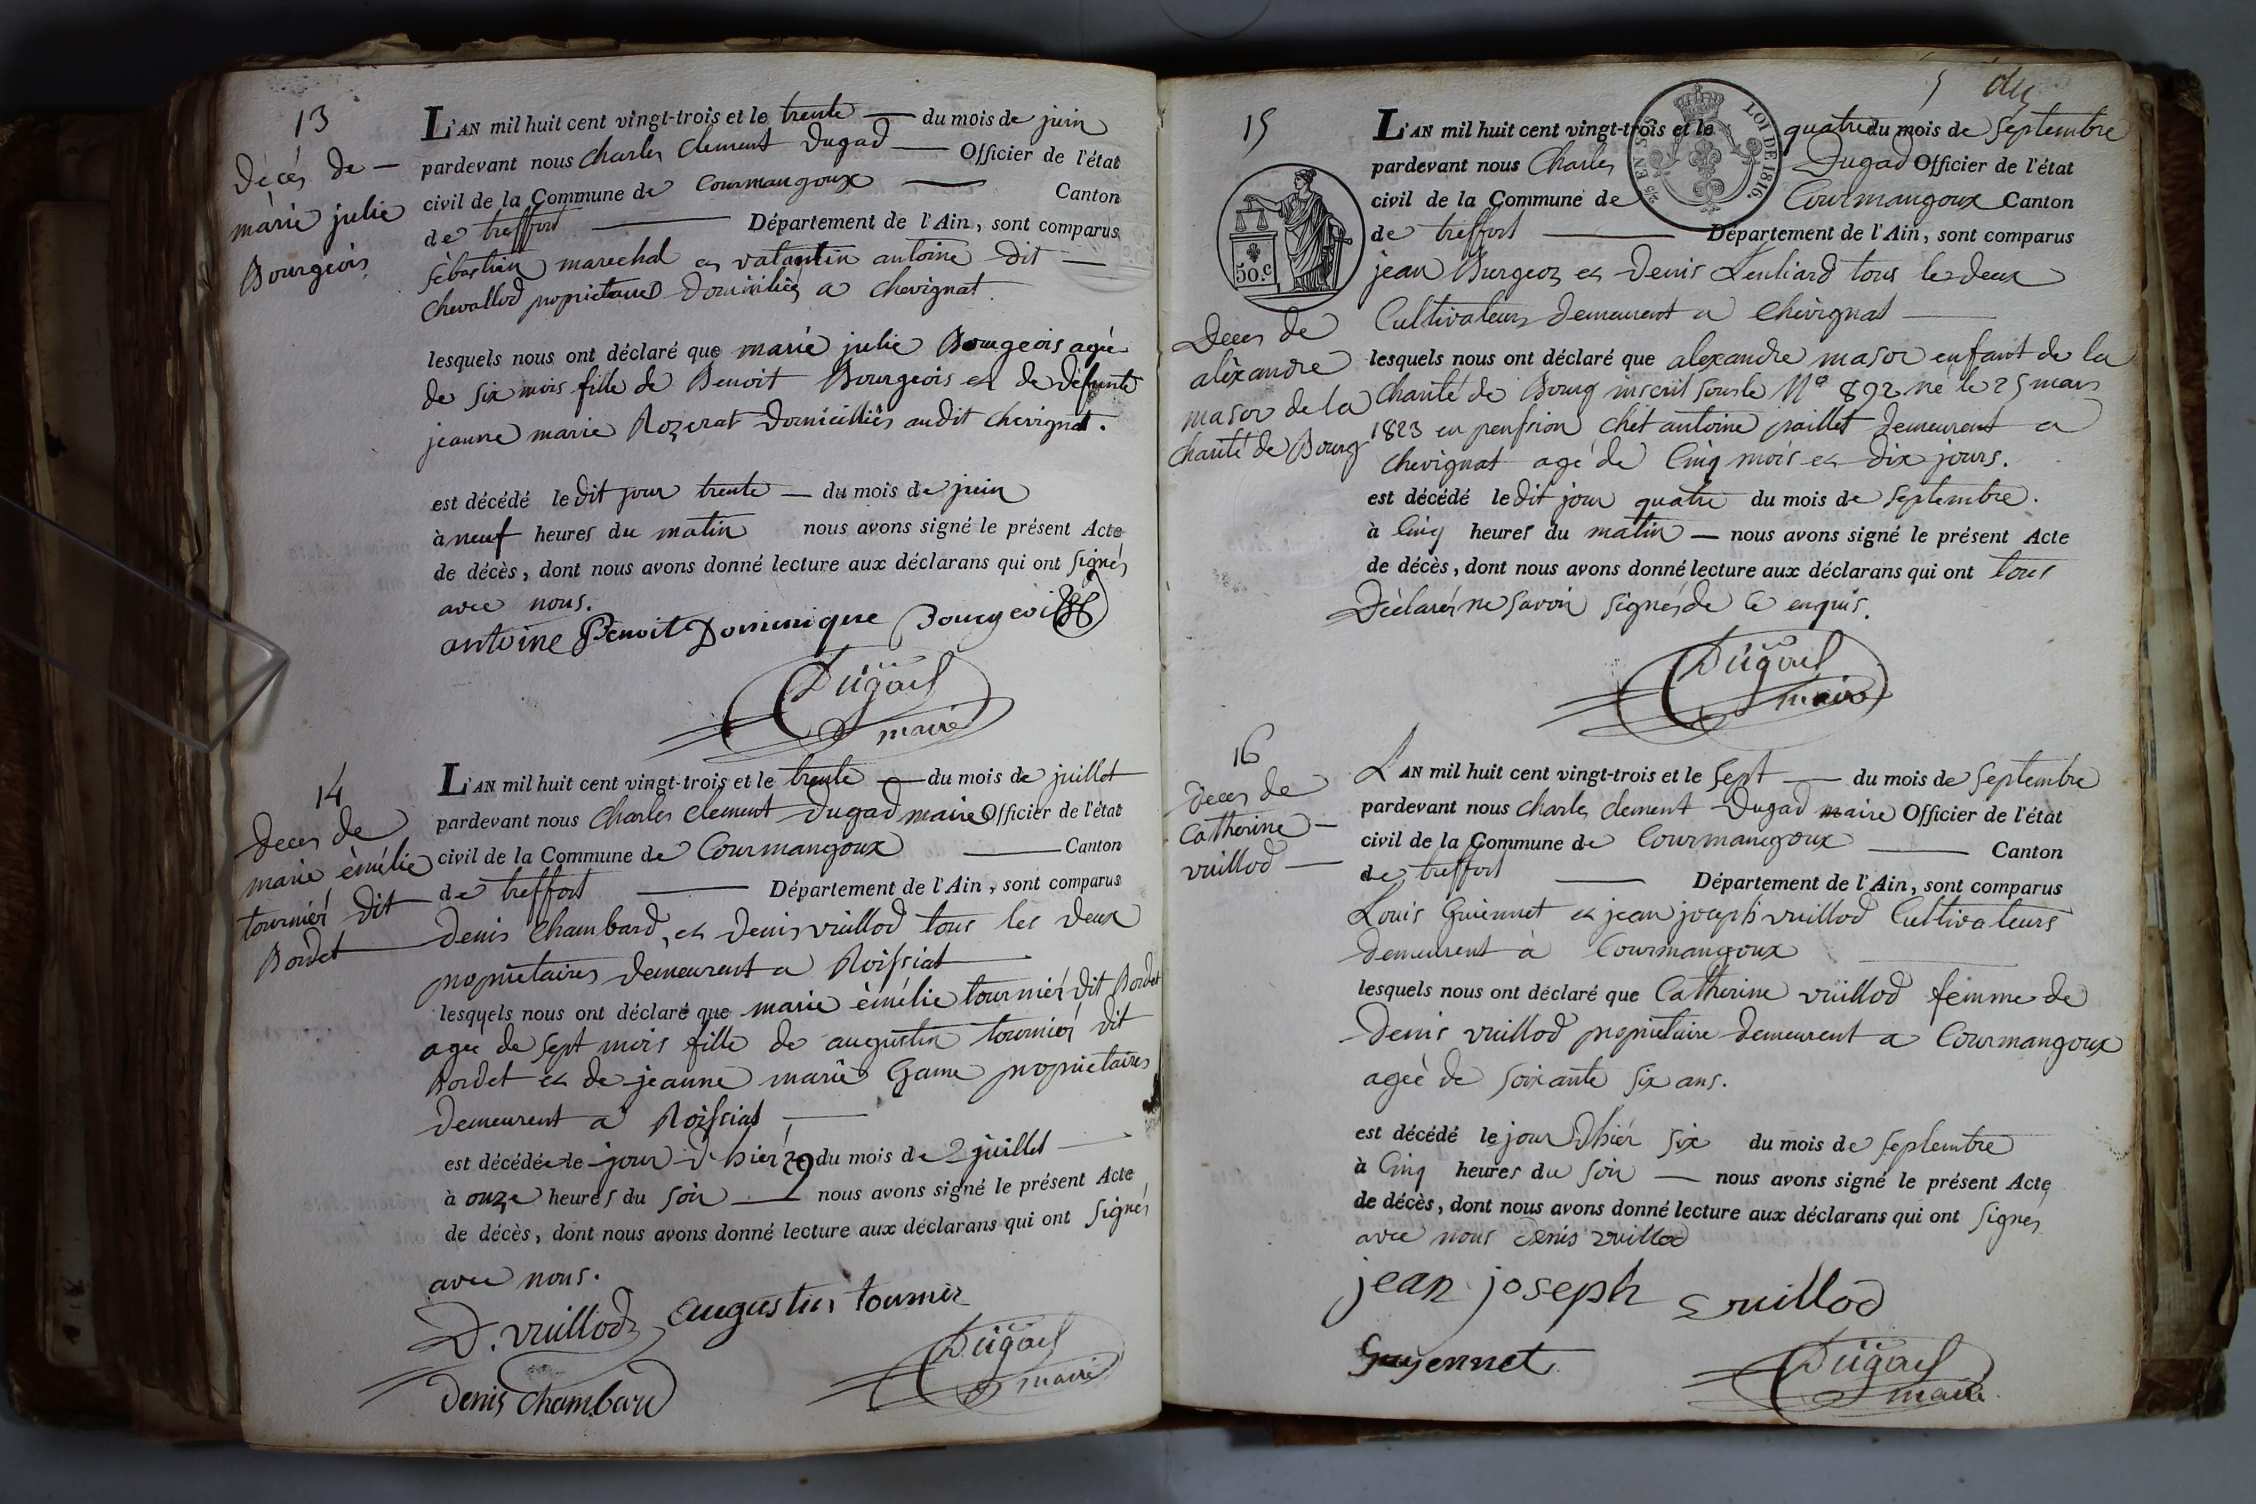 13
Décès de —
marie julie
Bourgeois
L'AN mil huit cent vingt-trois et le trente — du mois de juin
pardevant nous Charles Clement Dugad — Officier de l'état
civil de la Commune de Courmangoux — Canton
de treffort — Département de l'Ain, sont comparus
sébastien marechal et valantin antoine dit —
chevallod propriétaires domiciliés a chevignat.
lesquels nous ont déclaré que marie julie Bourgeois agée
de six mois fille de Benoit Bourgeois et de défunte
jeanne marie Rozerat domiciliés audit chevignat.
est décédé le dit jour trente — du mois de juin
à neuf heures du matin nous avons signé le présent Acte
de décès, dont nous avons donné lecture aux déclarans qui ont signés
avec nous.
antoine Benoit Dominique Bourgeois
Dugad
maire
14
Deces de
marie émélie
tournier dit
Bordet
L'AN mil huit cent vingt-trois et le trente — du mois de juillet
pardevant nous Charles Clement Dugad maire Officier de l'état
civil de la Commune de Courmangoux — Canton
de treffort — Département de l'Ain, sont comparus
Denis Chambard, et Denis vuillod tous les deux
propriétaires demeurent a Roissiat
lesquels nous ont déclaré que marie émélie tournier dit Bordet
agee de sept mois fille de augustin tournier dit
Bordet et de jeanne marie Game propriétaires
demeurent a Roissiat —
est décédée le jour d'hier 29 du mois de juillet
à onze heures du soir — nous avons signé le présent Acte
de décès, dont nous avons donné lecture aux déclarans qui ont signés
avec nous.
D. vuillod augustin tournier
Dugad
maire
Denis Chambard
5
15
50.c
2/5 EN SUS
LOI DE 1816
Deces de
alexandre
masor de la
charité de Bourg
L'AN mil huit cent vingt-trois et le quatre du mois de Septembre
pardevant nous Charles Dugad Officier de l'état
civil de la Commune de Courmangoux Canton
de treffort — Département de l'Ain, sont comparus
jean Burgeoz et Denis Leuliard tous les deux
Cultivateurs demeurent a Chevignat —
lesquels nous ont déclaré que alexandre masor enfant de la
charité de Bourg inscrit sous le N° 892 né le 25 mars
1823 en penssion chét antoine paillet demeurent a
chevignat agé de Cinq mois et dix jours.
est décédé le dit jour quatre du mois de septembre.
à Cinq heures du matin — nous avons signé le présent Acte
de décès, dont nous avons donné lecture aux déclarans qui ont tous
Déclarés ne savoir signés de ce enquis.
Dugad
maire
16
Deces de
Catherine —
vuillod —
L'AN mil huit cent vingt-trois et le sept — du mois de Septembre
pardevant nous Charles clement Dugad maire Officier de l'état
civil de la Commune de Courmangoux — Canton
de treffort — Département de l'Ain, sont comparus
Louis Guiennet et jean joseph vuillod Cultivateurs
demeurent à Courmangoux
lesquels nous ont déclaré que Catherine vuillod femme de
Denis vuillod propriétaire demeurent a Courmangoux
agée de soixante six ans.
est décédé le jour d'hiér six du mois de septembre
à Cinq heures du soir — nous avons signé le présent Acte
de décès, dont nous avons donné lecture aux déclarans qui ont signés
avec nous denis vuillod
jean joseph vuillod
Guyennet
Dugad
maire